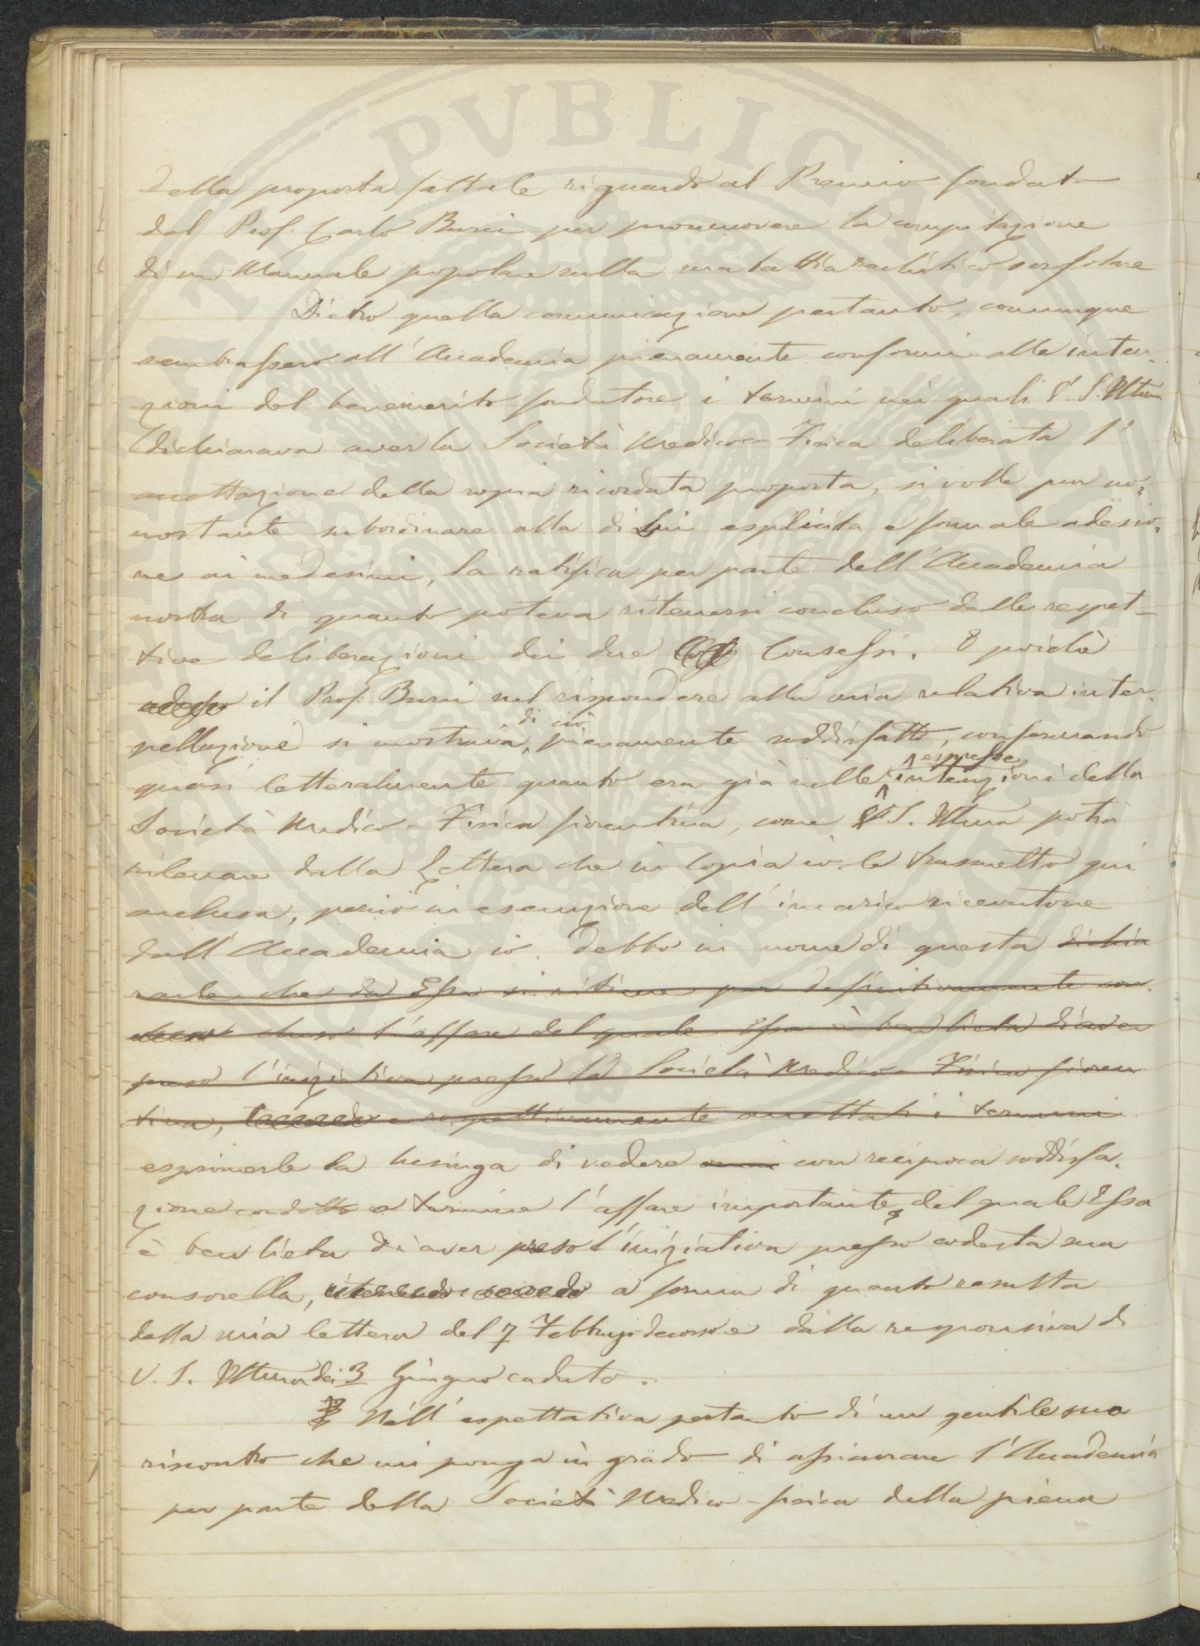 della proposta fattale riguardo al Premio fondato
dal Prof. Carlo Burci per promuovere la compilazione
di un Manuale popolare sulla malattia rachitico scrofolare
Dietro quella comunicazione pertanto, comunque
sembrassero all'Accademia pienamente conformi alle inten-
zioni del benemerito fondatore i termini nei quali V. S. Illma
dichiarava aver la Società Medico-Fisica deliberata l'
accettazione della sopra ricordata proposta, si volle pur no-
nostante subordinare alla di Lui esplicita e formale adesio-
ne ai medesimi, la ratifica per parte dell'Accademia
nostra di quanto poteva ritenersi concluso dalle respet-
tive deliberazioni dei due Consessi. E poichè
il Prof. Burci nel rispondere alla mia relativa inter-
pellazione si mostrava di ciò pienamente soddisfatto, confermando
quasi letteralmente quanto era già nelle espresse intenzioni della
Società Medico-Fisica fiorentina, come V. S. Illma potrà
rilevare dalla Lettera che in copia io le trasmetto qui
inclusa, perciò in esecuzione dell'incarico ricevutone
dall'Accademia io debbo in nome di questa dichia
rarle che da Essa si ritiene per definitivamente con-
cluso l'affare del quale Essa è ben lieta di aver
preso l'iniziativa presso la Società Medico-Fisica fioren
tina, e respettivamente accettati i termini
esprimerle la lusinga di vedere con reciproca soddisfa-
zione condotto a termine l'affare importante, del quale Essa
è ben lieta di aver preso l'iniziativa presso codesta sua
consorella, ritenendo a forma di quanto resulta
dalla mia lettera del 7 Febbrajo decorso e dalla responsiva di
V. S. Illma dei 3 Giugno caduto.
Nell'espettativa pertanto di un gentile suo
riscontro che mi ponga in grado di assicurare l'Accademia
per parte della Società Medico-fisica della piena